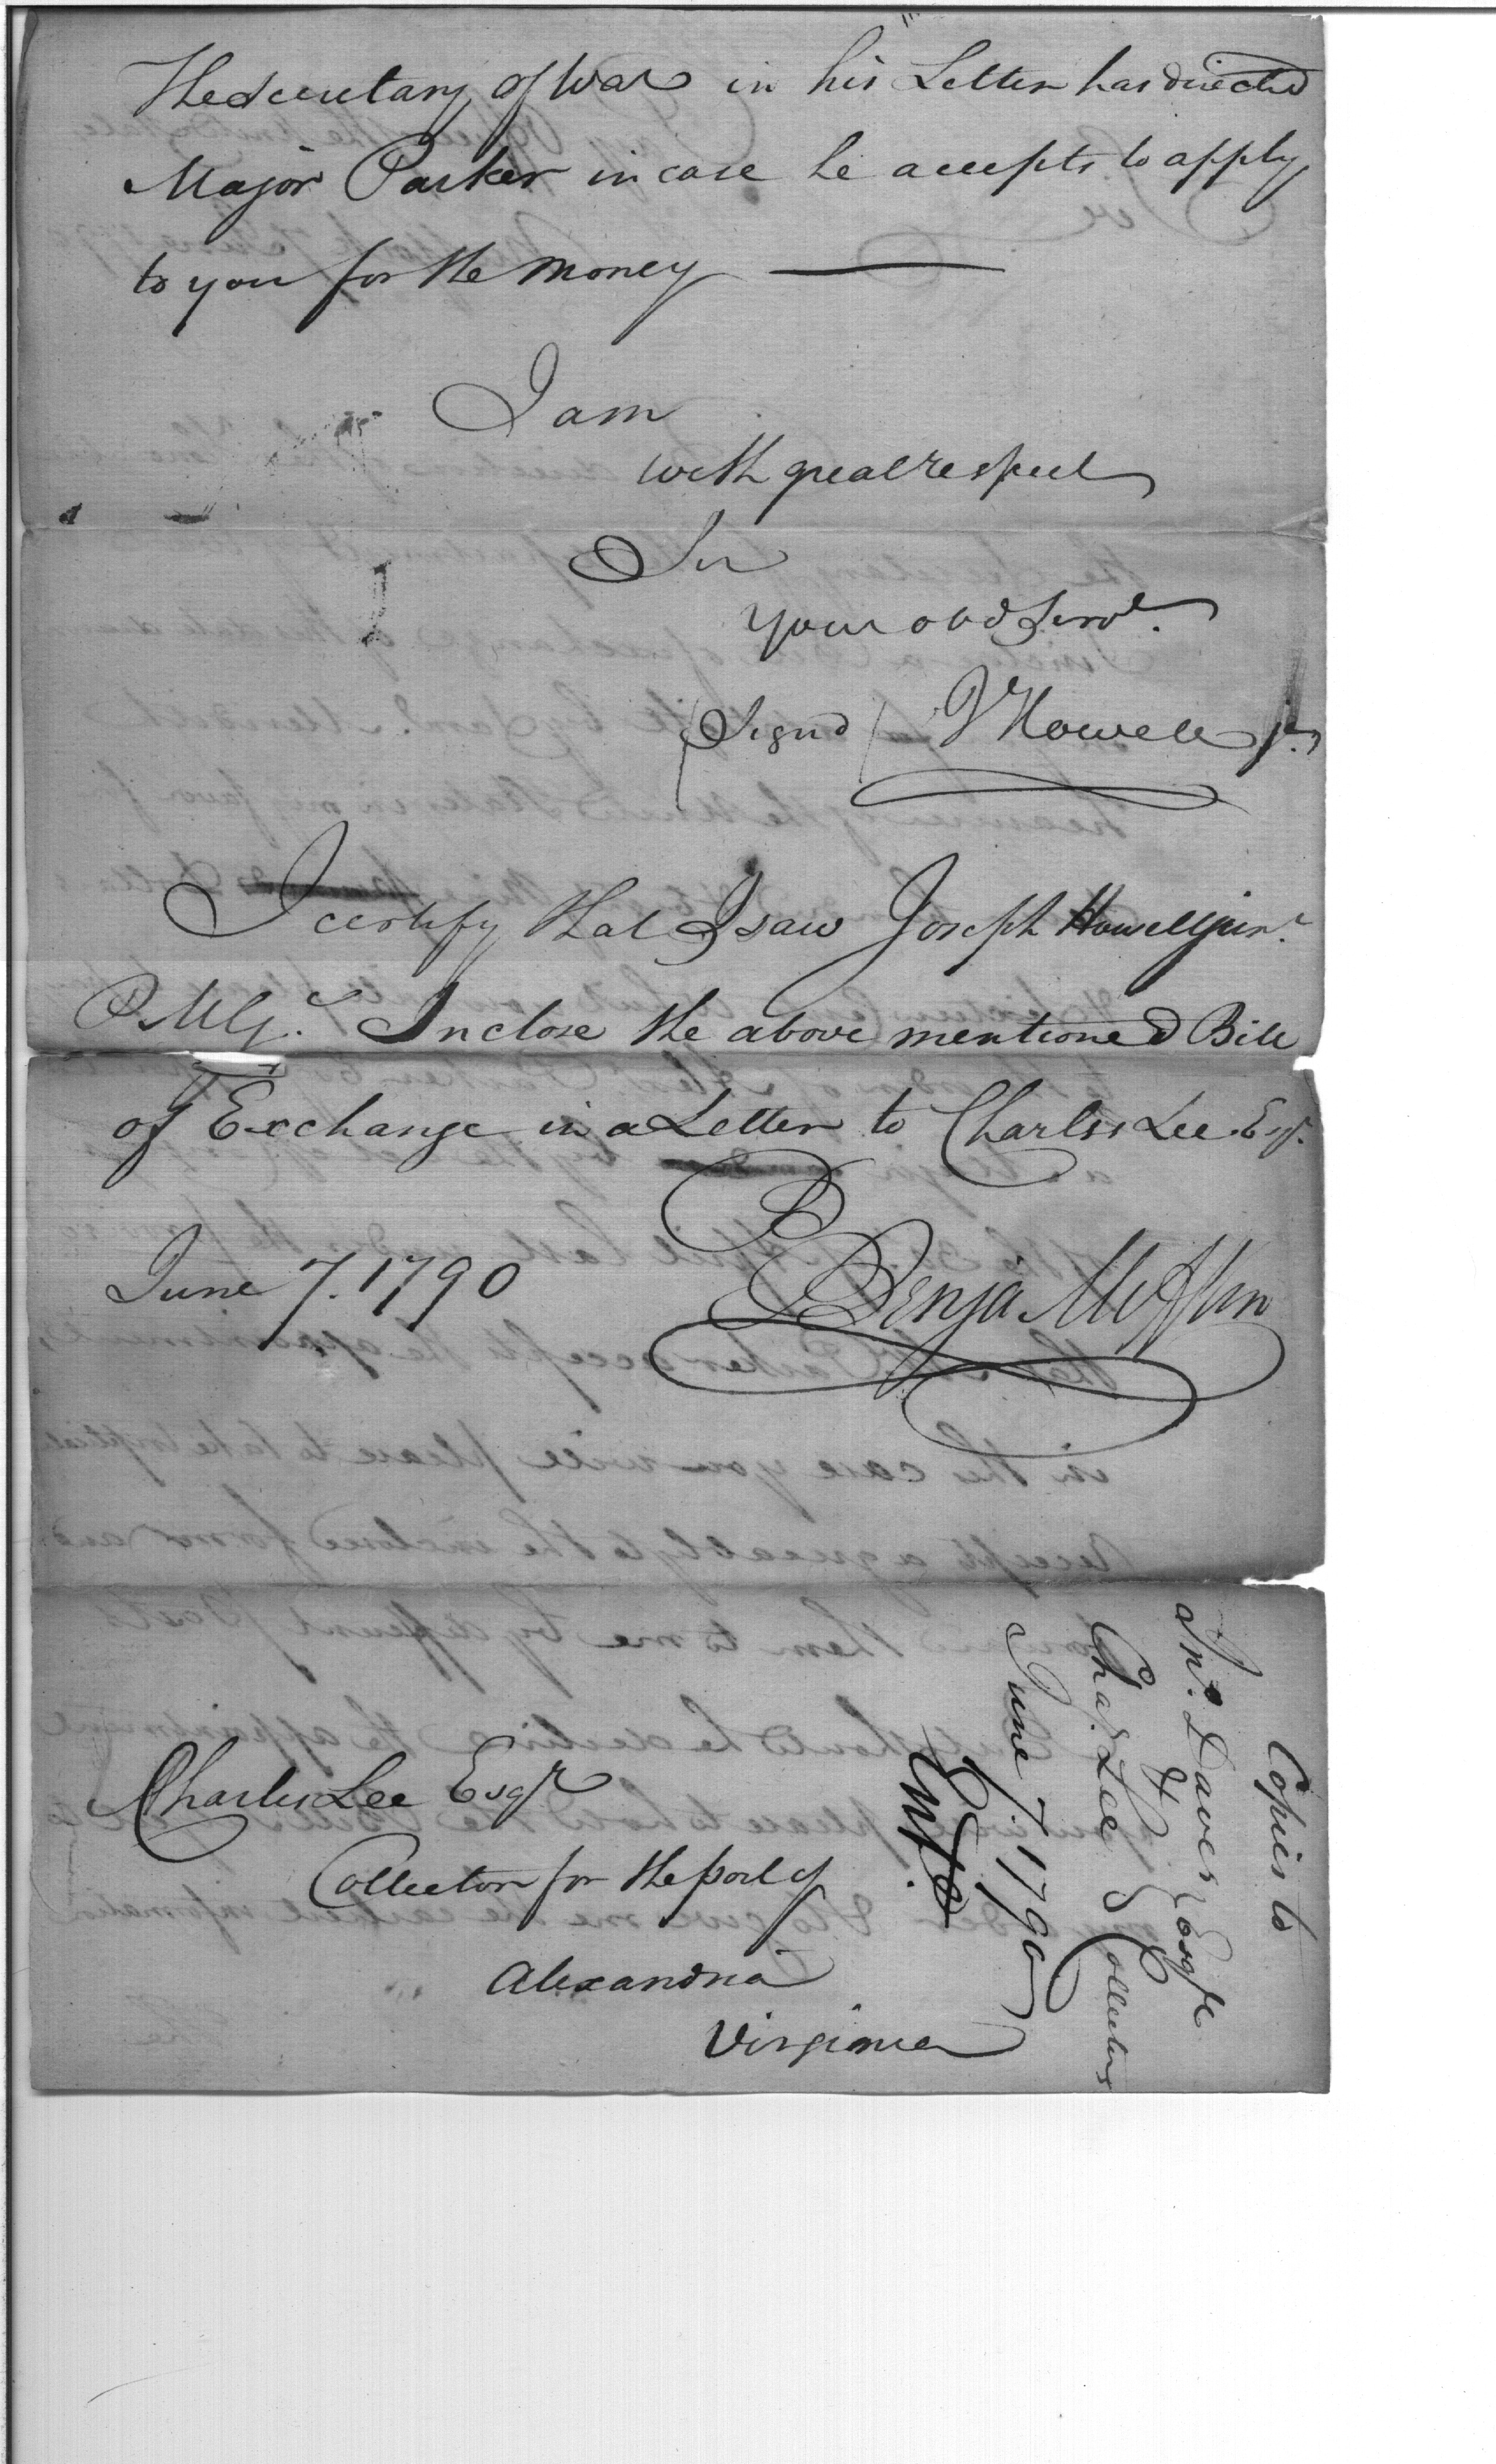 The Secretary of War in his Letter has directed
Major Parker in case he accepts to apply
to you for the money
I am
with great respect
Sir
your obd Servt.
(Signd) J Howell jr.
I certify that I saw Joseph Howell junr.
P.M.G. Inclose the above mentioned Bill
of Exchange in a Letter to Charles Lee Esqr.
June 7. 1790
Benja Mifflin
Charles Lee Esqr
Collector for the port of
Alexandria
Virginia
Copies to
Jno. Daves
& Esqrs
Chas. Lee Collectors
June 7. 1790
Entd